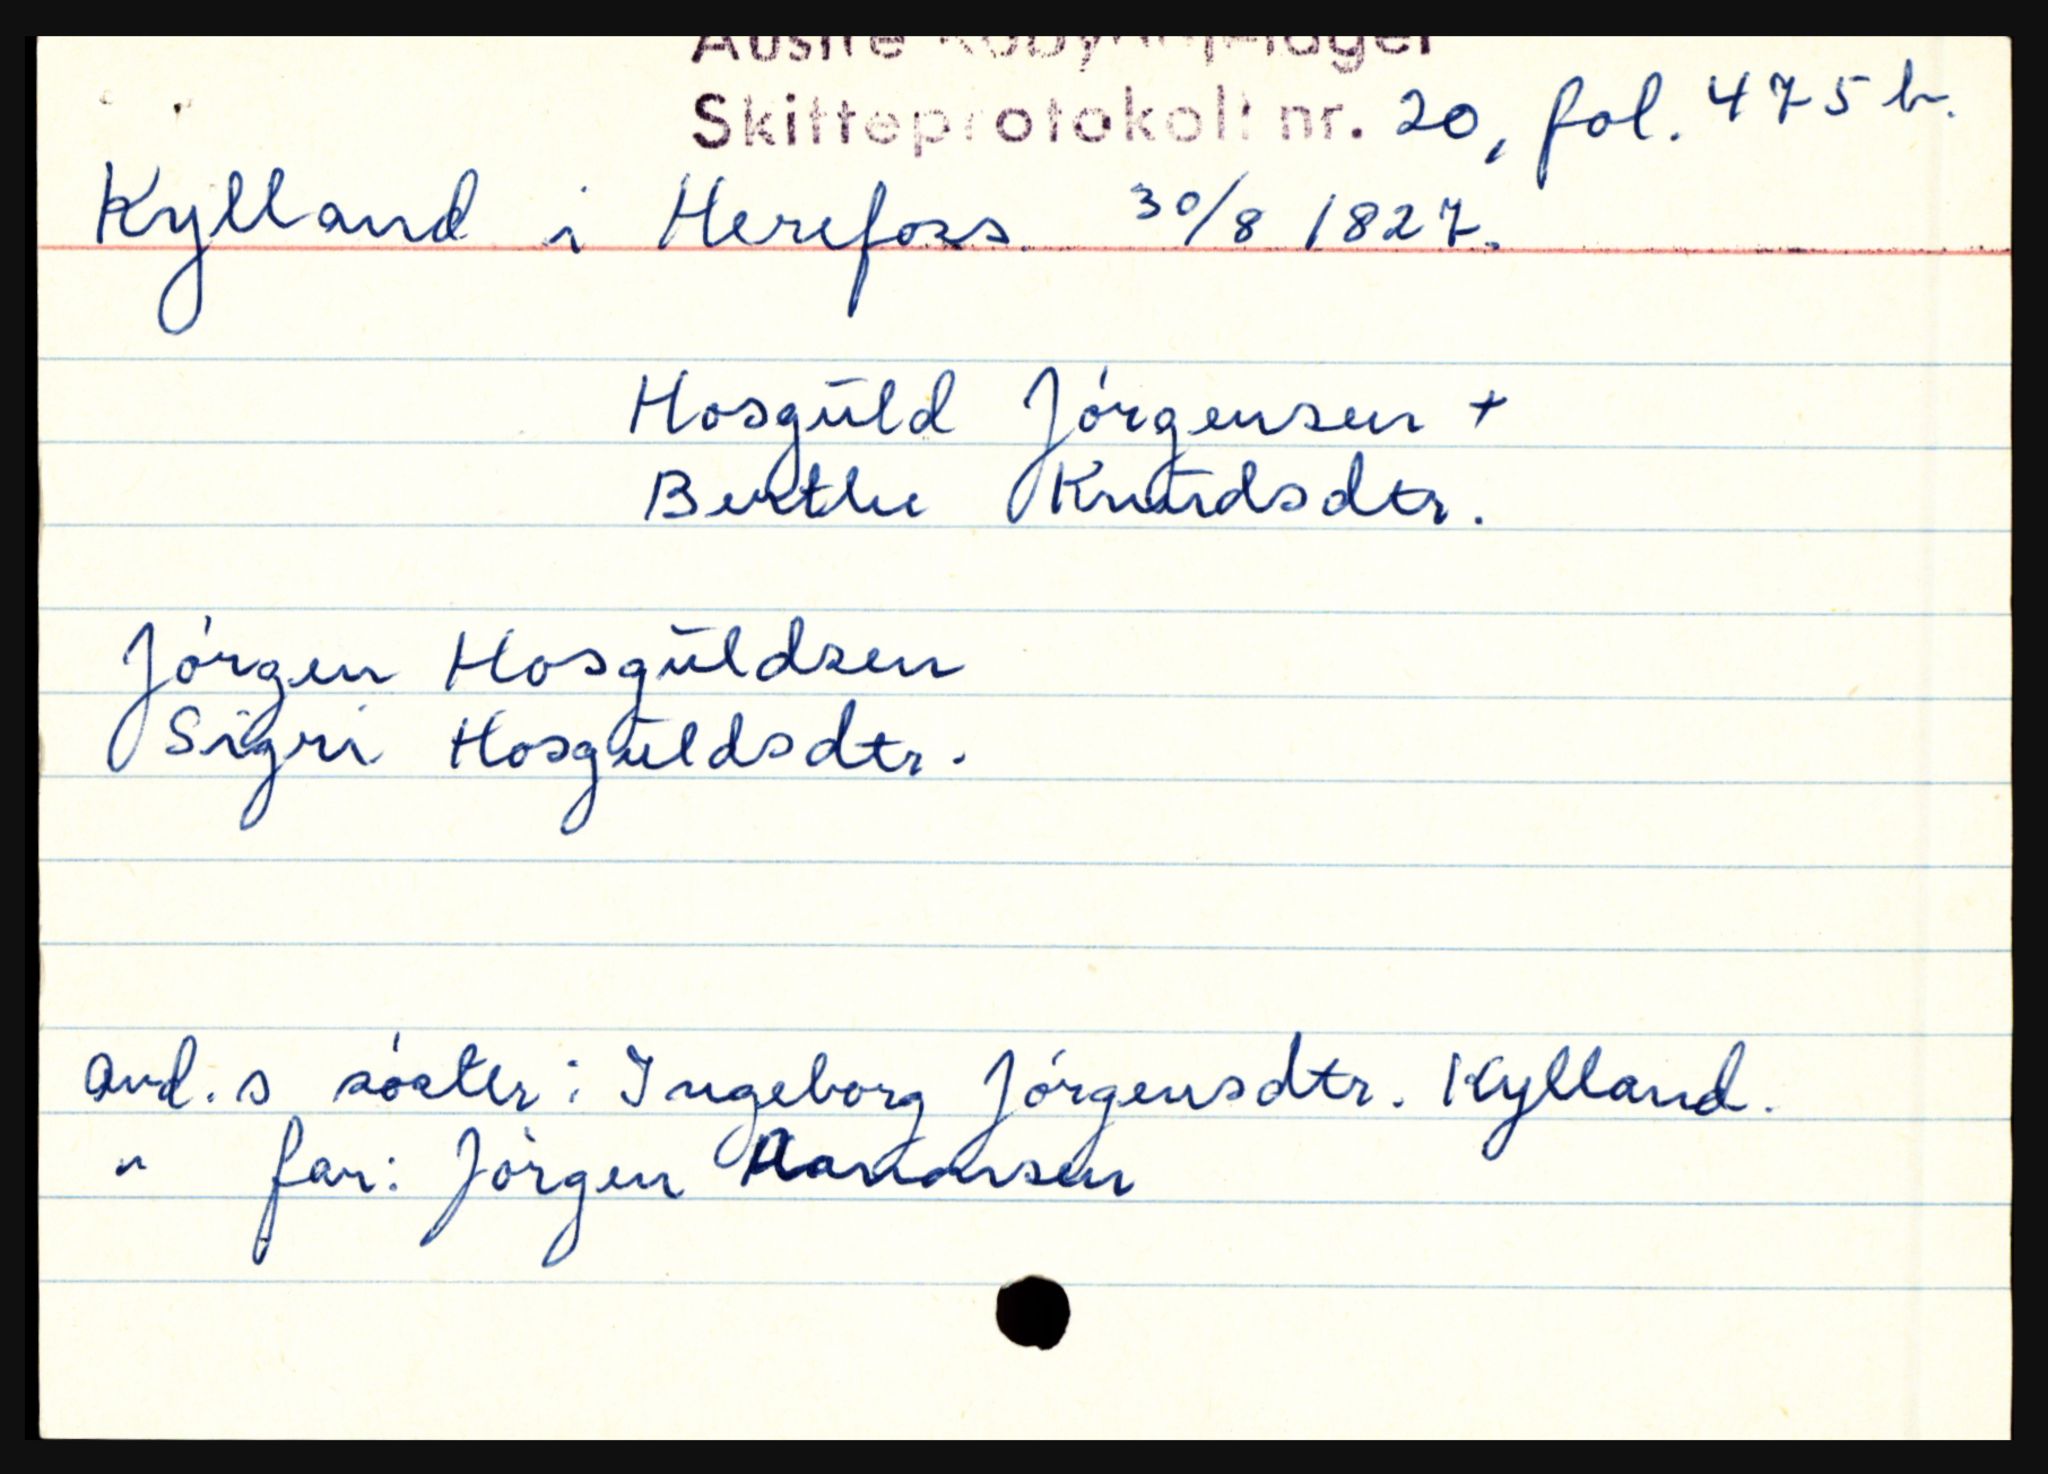 Austre Råbyggelager
Skifteprotokoll nr. 20, fol. 475 b.
Kylland i Herefoss 30/8 1827.
Hosguld Jórgensen +
Berthe Knudsdtr.
Jórgen Hosguldsen
Sigri Hosguldsdtr.
avd. s sóster: Ingeborg Jórgensdtr. Kylland.
" far: Jórgen Aanonsen